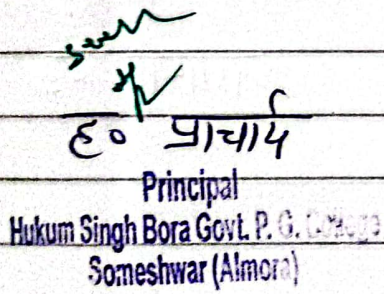 Seen
ह० प्राचार्य
Principal
Hukum Singh Bora Govt. P. G. College
Someshwar (Almora)